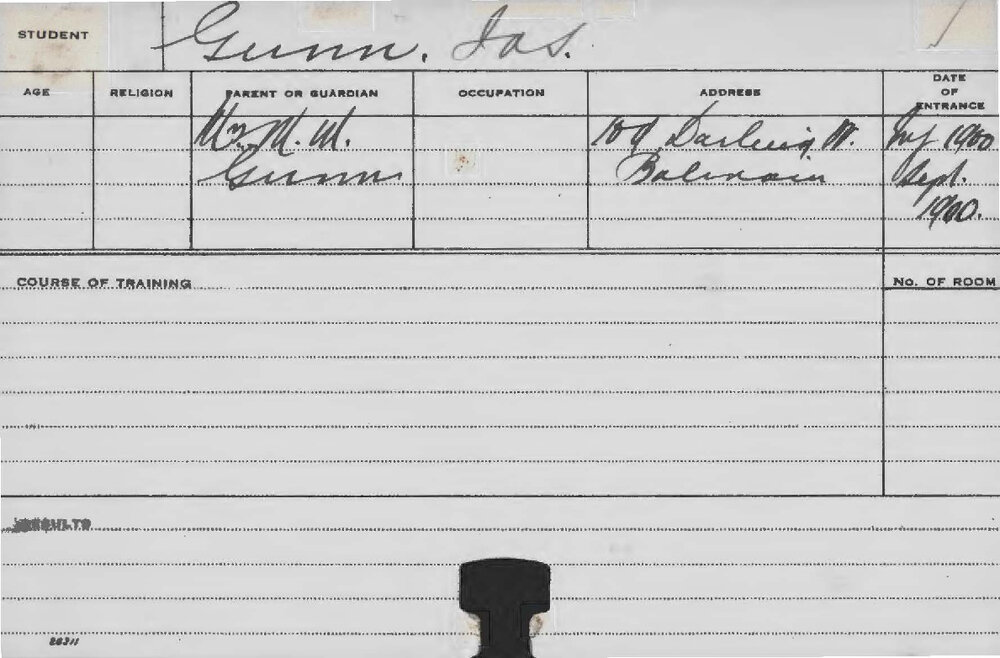 STUDENT Gunn, Jas.
AGE RELIGION PARENT OR GUARDIAN OCCUPATION ADDRESS DATE OF ENTRANCE
M. M. 109 Darling St. 1900
Gunn Balmain Sept.
1900.
COURSE OF TRAINING No. OF ROOM
RESULTS
26311